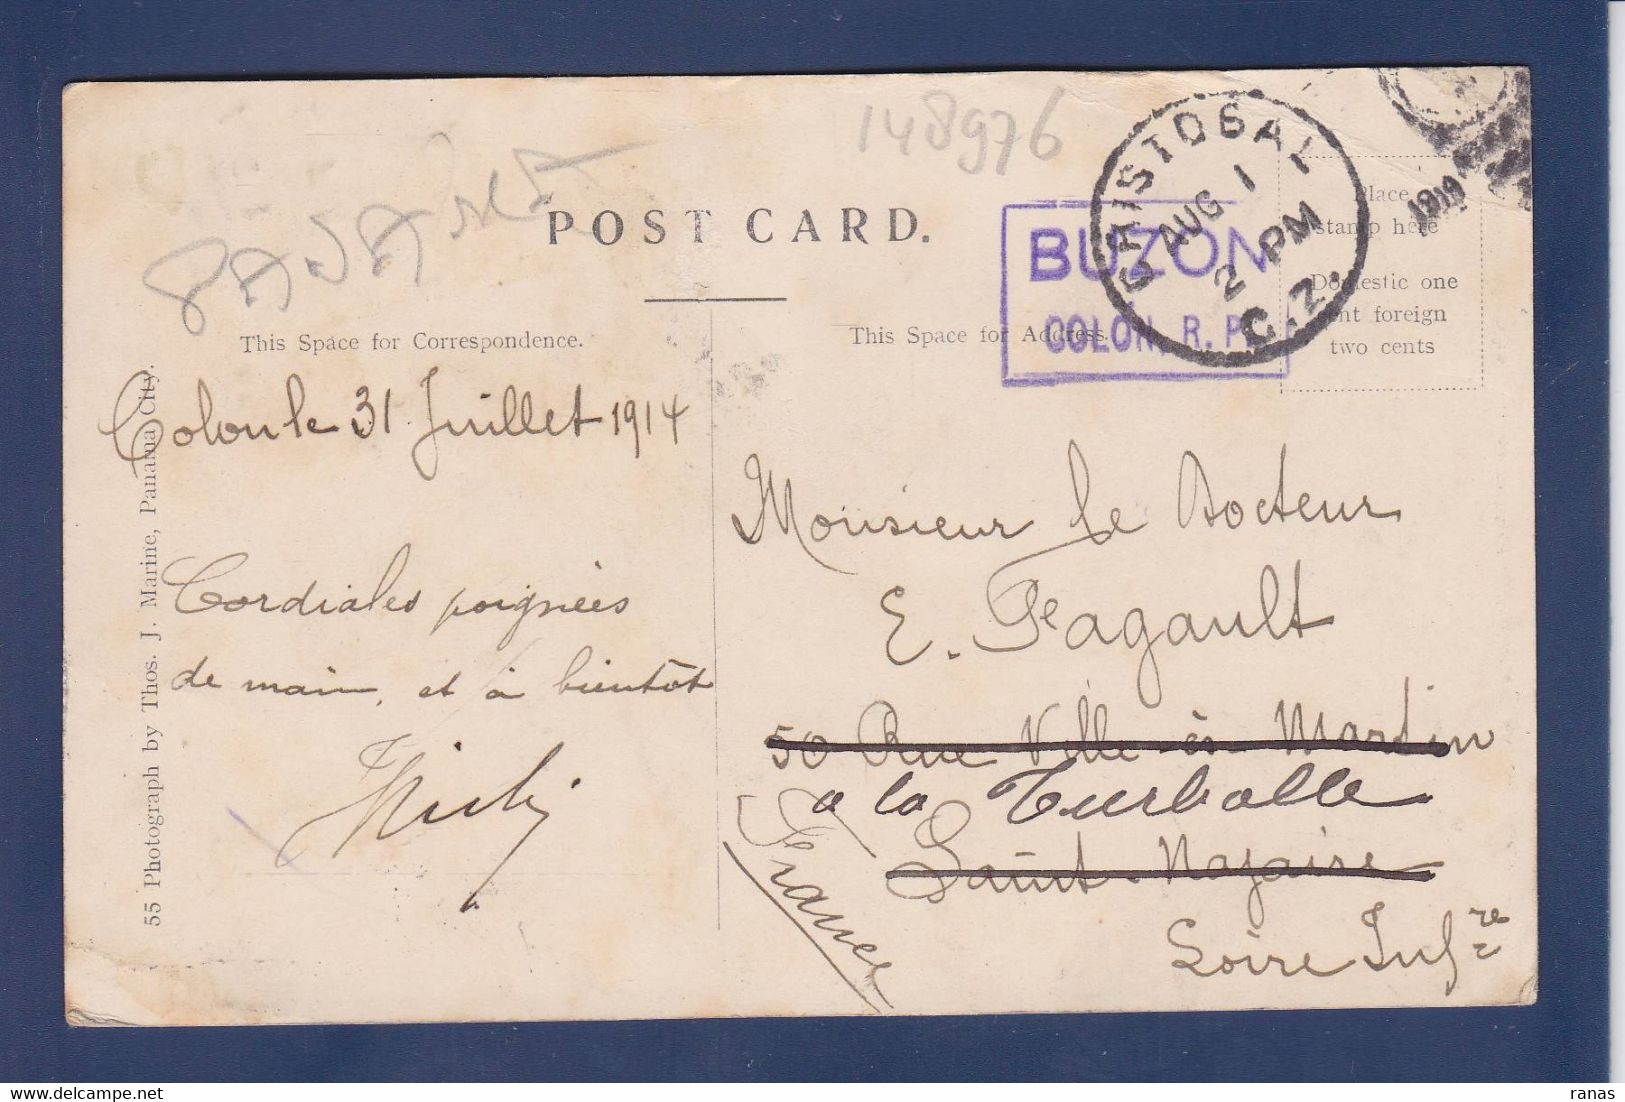 148976
POST CARD.
CRISTOBAL
AUG 1
2 PM
C.Z.
BUZON
COLON, R. P.
Place
stamp here
Domestic one
cent foreign
two cents
This Space for Correspondence.
This Space for Address.
Colon le 31 Juillet 1914
Cordiales poignées
de main, et à bientôt
Monsieur le Docteur
E. Pagault
50 Rue Ville-ès-Martin
a la Turballe
Saint-Nazaire
Loire Infre
France
55 Photograph by Thos. J. Marine, Panama City.
ranas